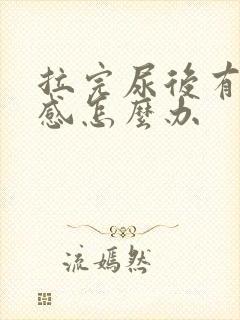 拉完尿後有
感怎麼办
流嫣然